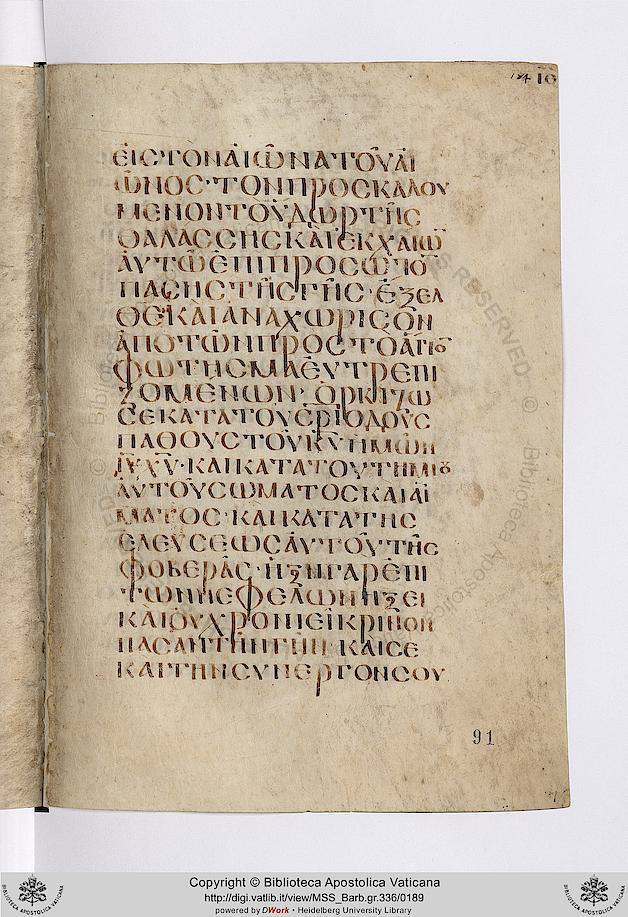 184 10
ΕΙϹΤΟΝΑΙΩΝΑΤΟΥΑΙ
ΩΝΟϹ·ΤΟΝΠΡΟϹΚΑΛΟΥ
ΜΕΝΟΝΤΟΥΔΩΡΤΗϹ
ΘΑΛΑϹϹΗϹΚΑΙΕΚΧΑΙΩ
ΑΥΤΩΕΠΙΠΡΟϹΩΠΟ
ΠΑϹΗϹΤΗϹΓΗϹ·ΕΞΕΛ
ΘΕΚΑΙΑΝΑΧΩΡΙϹΟΝ
ΑΠΟΤΩΝΠΡΟϹΤΟΑΓΙΟ
ΦΩΤΗϹΜΑΕΥΤΡΕΠΙ
ΖΟΜΕΝΩΝ·ΟΡΚΙΖΩ
ϹΕΚΑΤΑΤΟΥϹΡΙΟΔΟΥϹ
ΠΑΘΟΥϹΤΟΥΚΥΗΜΩΝ
ΙΥΧΥ·ΚΑΙΚΑΤΑΤΟΥΤΗΜΙȢ
ΑΥΤΟΥϹΩΜΑΤΟϹΚΑΙΑΙ
ΜΑΤΟϹ·ΚΑΙΚΑΤΑΤΗϹ
ΕΛΕΥϹΕΩϹΑΥΤΟΥΤΗϹ
ΦΟΒΕΡΑϹ·ΗΞΗΓΑΡΕΠΙ
ΤΩΝΝΕΦΕΛΩΝΗΞΕΙ
ΚΑΙΟΥΧΡΟΝΙΕΙΚΡΙΝΟΝ
ΠΑϹΑΝΤΗΝΓΗΝ·ΚΑΙϹΕ
ΚΑΙΤΗΝϹΥΝΕΡΓΟΝϹΟΥ
91
Copyright © Biblioteca Apostolica Vaticana
http://digi.vatlib.it/view/MSS_Barb.gr.336/0189
powered by DWork • Heidelberg University Library